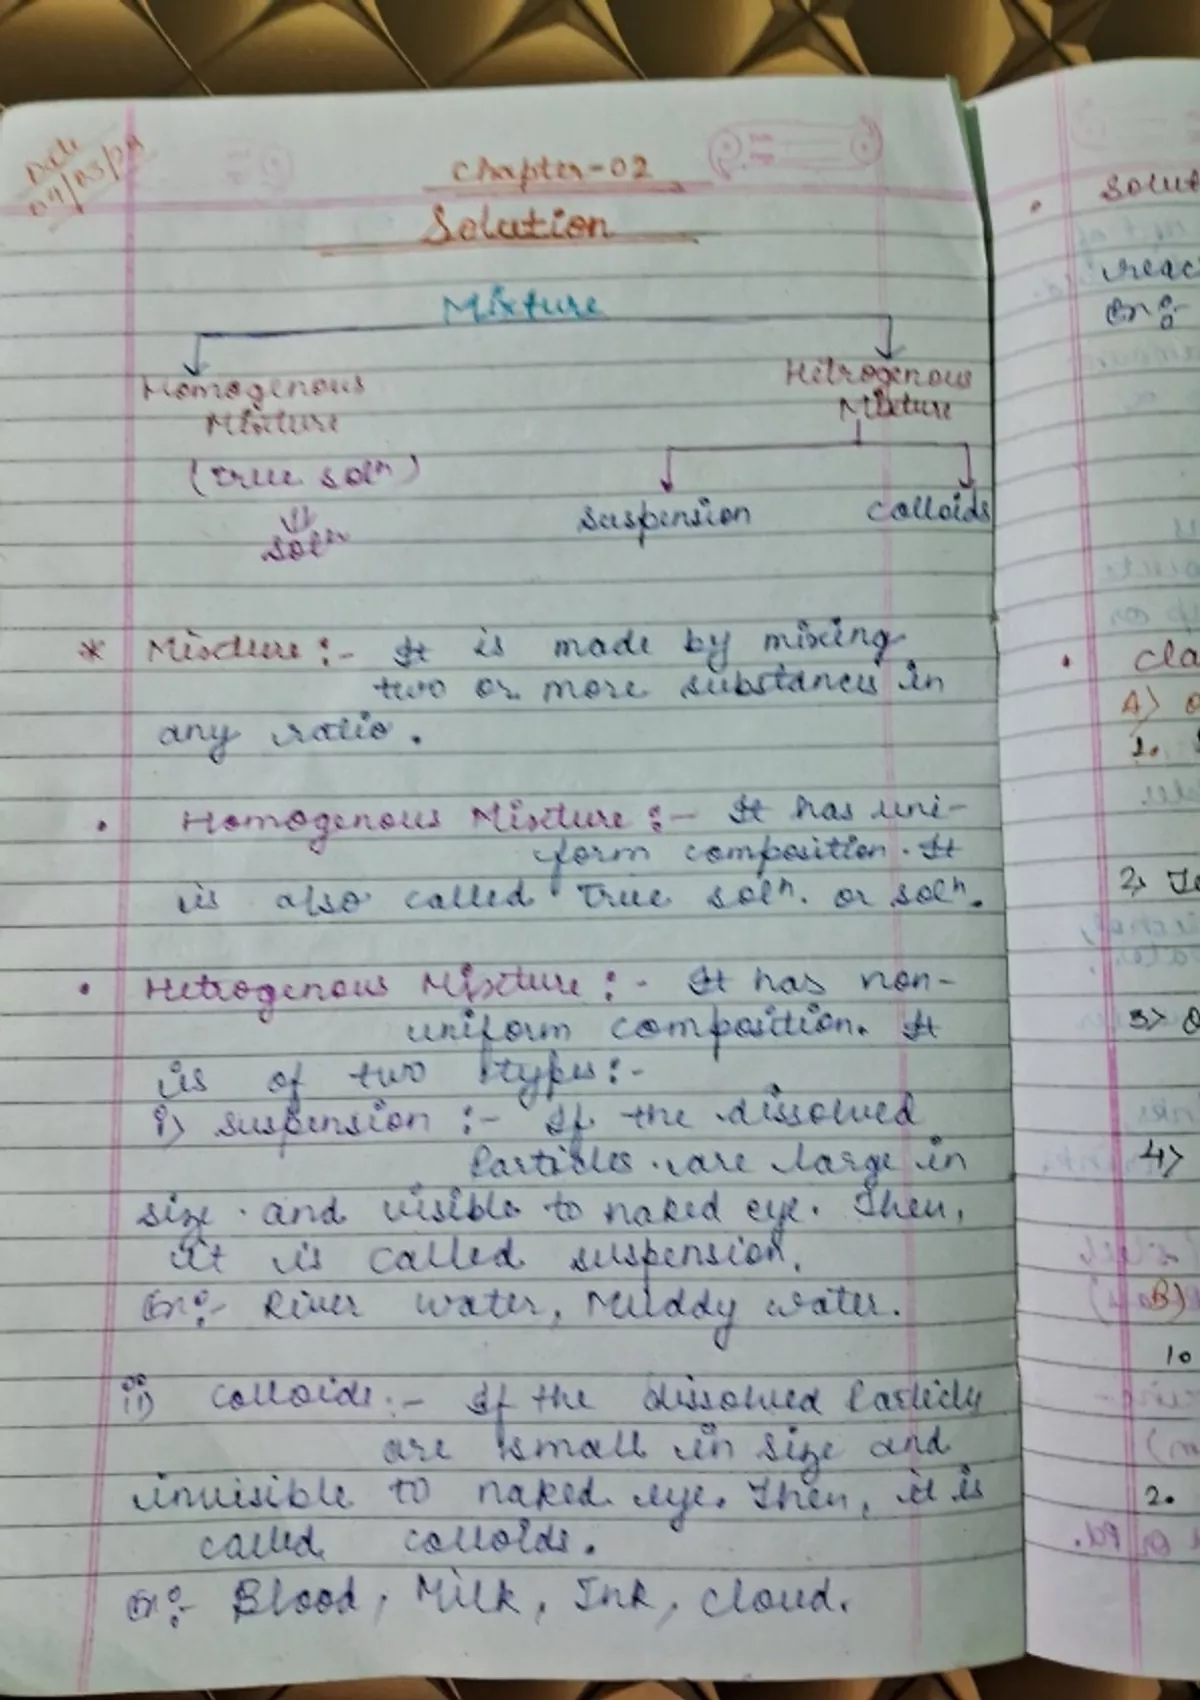 Date
Chapter-02
Solution
Mixture
Homogenous
Mixture
Hetrogenous
Mixture
(True solⁿ)
⇓
solⁿ
Suspension
Colloids
* Mixture :- It is made by mixing
two or more substances in
any ratio.
• Homogenous Mixture :- It has uni-
form composition. It
is also called True solⁿ. or solⁿ.
• Hetrogenous Mixture :- It has non-
uniform composition. It
is of two types :-
i) Suspension :- If the dissolved
Particles are large in
size and visible to naked eye. Then,
it is called suspension.
Ex:- River water, Muddy water.
ii) Colloids :- If the dissolved Particles
are small in size and
invisible to naked eye. Then, it is
called colloids.
Ex:- Blood, Milk, Ink, cloud.
A)
1.
2)
3)
4)
B)
1.
2.